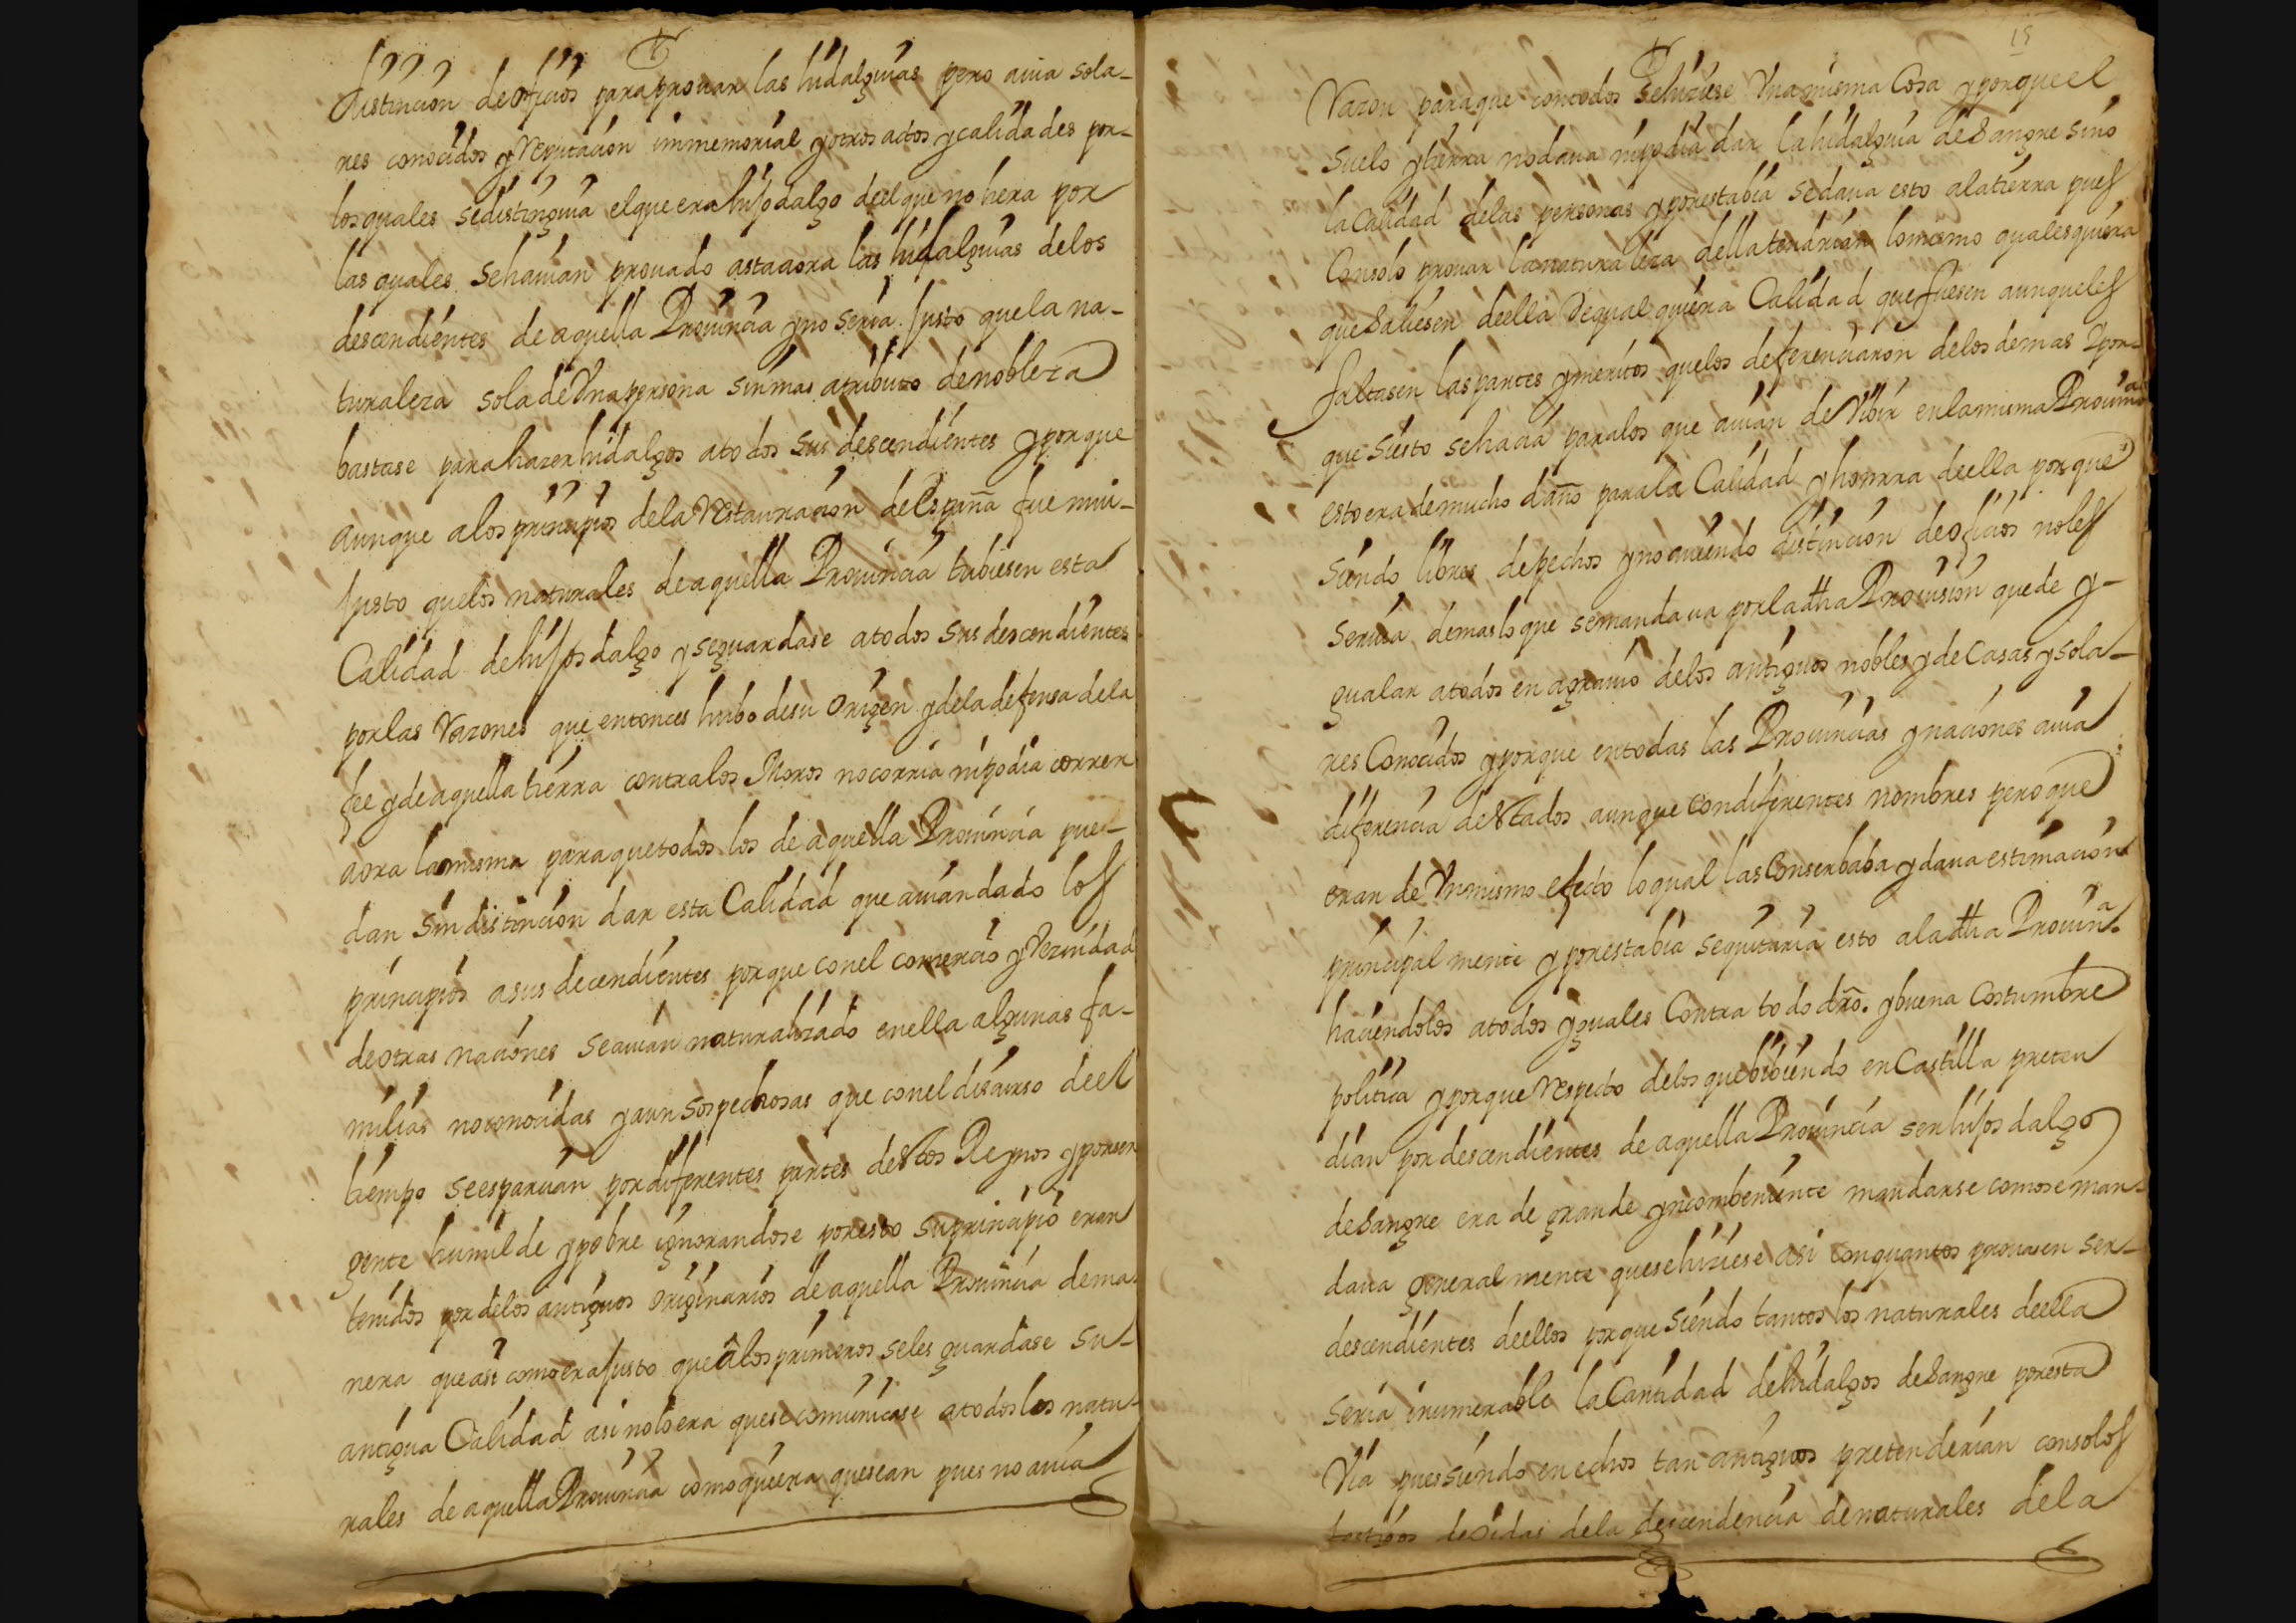 distincion de oficios para provar las hidalguias pero avia sola-
res conocidos y Reputacion immemorial y otros actos y calidades por-
los quales se distinguia el que era hijodalgo del que no hera por
las quales se havian provado asta aora las hidalguias de los
descendientes de aquella Provincia y no seria Justo que la na-
turaleza sola de Una persona sin mas atributo de nobleza
bastase para hazer hidalgos a todos sus descendientes y porque
aunque a los principios de la Restauracion de España fue mui-
Justo que los naturales de aquella Provincia tubiesen esta
Calidad de hijosdalgo y se guardase a todos sus descendientes
por las Razones que entonces hubo de su Origen y de la defensa de la
fee y de aquella tierra contra los Moros no corria ni podia correr
aora la misma para que todos los de aquella Provincia pue-
dan sin distincion dar esta Calidad que avian dado los
principios a sus decendientes porque con el comercio y Vezindad
de otras naciones se avian naturalizado en ella algunas fa-
milias no conocidas y aun sospechosas que con el discurso de el
tiempo se esparcian por diferentes partes destos Reynos y por ser
gente humilde y pobre ignorandose por esto su principio eran
tenidos por de los antiguos originarios de aquella Provincia de ma-
nera que asi como era Justo que â los primeros se les guardase su-
antigua Calidad asi no lo era que se comunicase a todos los natu-
rales de aquella Provincia como quiera que sean pues no avia
18
Razon para que con todos se hiziese Una misma Cosa y porque el
suelo y tierra no dava ni podia dar la hidalguia de Sangre sino
la Calidad de las personas y por esta bia se dava esto a la tierra pues
Con solo provar la naturaleza della tendrian lo mismo qualesquiera
que Saliesen de ella de qualquiera Calidad que fuesen aunque les
faltasen las partes y meritos que los deferenciaron de los demas Y por-
que si esto se hacia para los que avian de Vibir en la misma Provincia
esto era de mucho daño para la Calidad y honrra de ella porque
siendo libres de pechos y no aviendo distincion de oficios no les
servia de mas lo que se mandava por la dha Provision que de y-
gualar a todos en agravio de los antiguos nobles y de Casas y sola-
res Conocidos y porque en todas las Provincias y naciones avia
diferencia de Estados aunque con diferentes nombres pero que
eran de Un mismo efecto lo qual las Conserbaba y dava estimacion
principalmente y por esta bia se quitaria esto a la dha Provinª.
haciendolos a todos yguales Contra todo dro. y buena Costumbre
politica y porque Respecto de los que bibiendo en Castilla preten
dian por descendientes de aquella Provincia ser hijosdalgo
de Sangre era de grande yncombeniente mandarse como se man-
dava generalmente que se hiziese asi con quantos provasen ser-
descendientes de ellos porque siendo tantos los naturales de ella
seria inumerable la Cantidad de hidalgos de Sangre por esta
Via pues siendo en echos tan antiguos pretenderian con solos
testigos de oidas de la descendencia de naturales de la